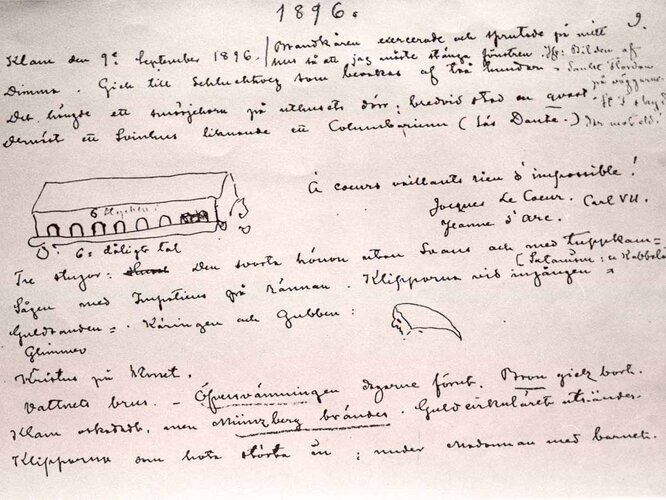 1896.
9.
Klam den 9e September 1896. / Brandkåren exercerade och sprutade på mitt
hus så att jag måste stänga fönstren. Bilden af
Dimma. Gick till Schluchtweg som bevakas af två hundar. Sankt Florian
på väggarne
Det hängde ett smörjehorn på uthusets dörr; bredvid stod en quast
Dernäst ett Svinhus liknande ett Columbarium (Läs Dante.)
6 stycken!
6 = dåligt tal
À coeurs vaillants rien d'impossible!
Jacques Le Coeur. Carl VII.
Jeanne d'Arc.
Tre stugor: Den svarta hönan utan Svans och med tuppkam =
Sågen med Impatiens på rännan. Klipporna vid ingången =
Guldtanden =. Käringen och Gubben:
Glimmer
Kristus på Korset.
Vattnets brus. – Öfversvämningen dagarne förut. Bron gick bort.
Klam oskadadt, men Münzberg brändes. Guldcirkuläret utsändes.
Klipporna som hota störta in; under Madonnan med barnet.